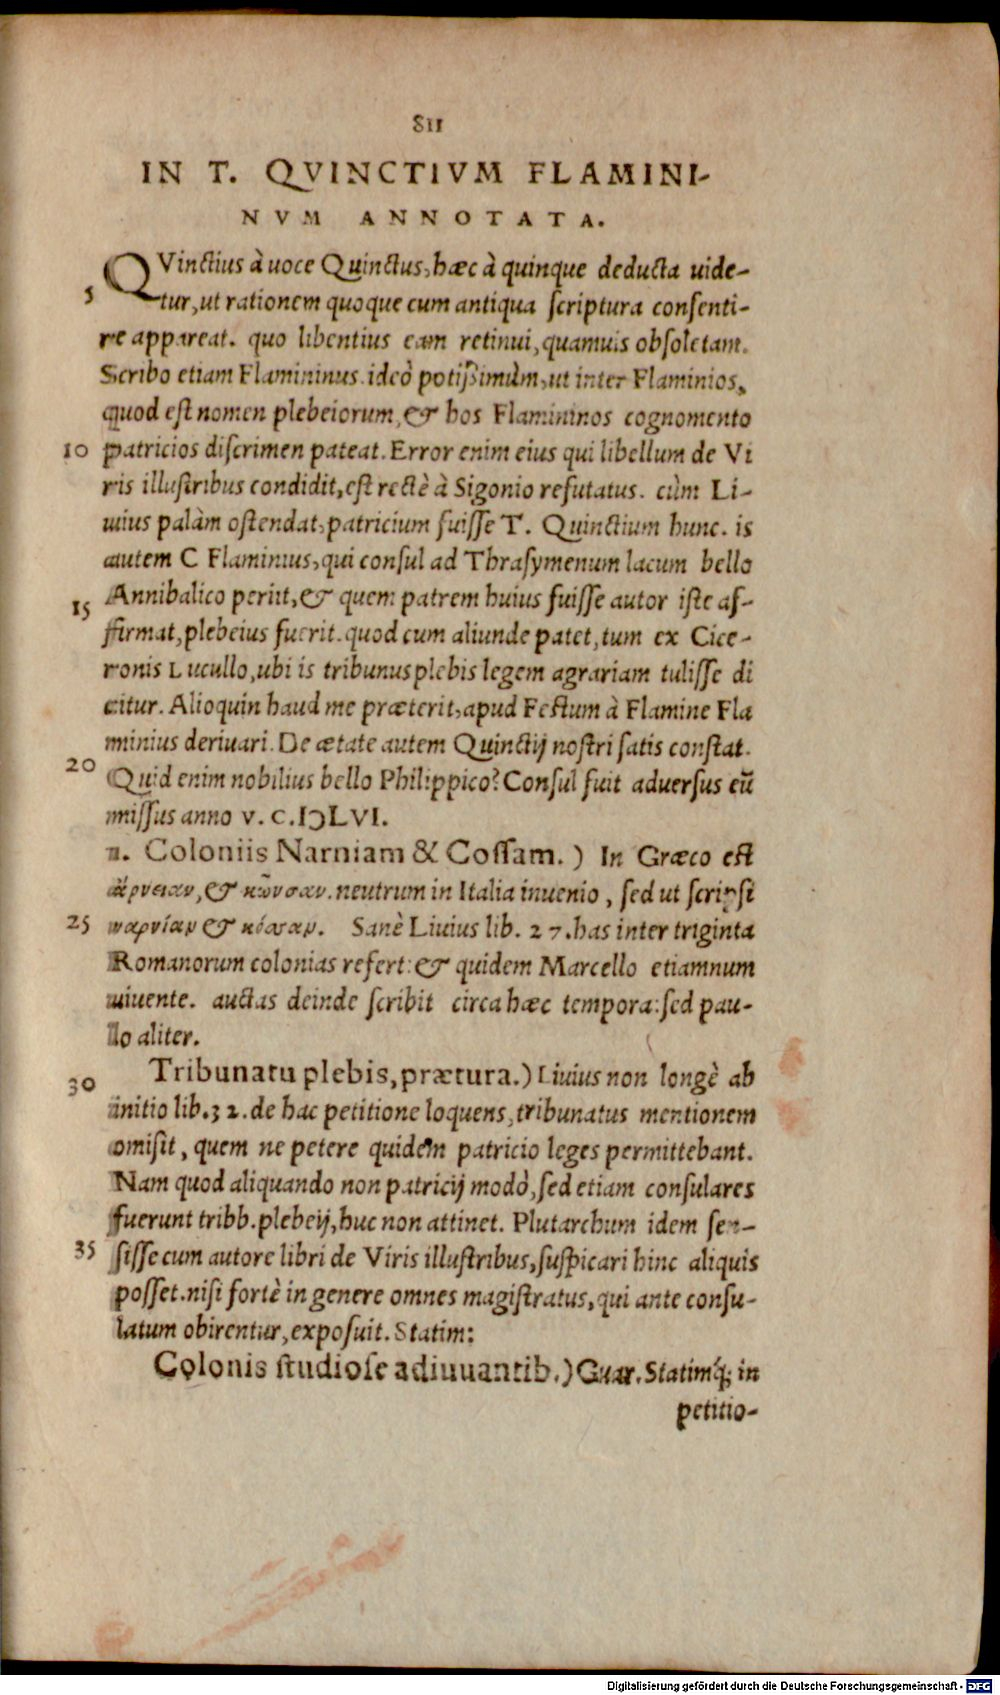 811
IN T. QVINCTIVM FLAMINI-
NVM ANNOTATA.
QVinctius à uoce Quinctus, hæc à quinque deducta uide-
5 tur, ut rationem quoque cum antiqua scriptura consenti-
re appareat. quo libentius eam retinui, quamuis obsoletam.
Scribo etiam Flamininus. ideò potißimùm, ut inter Flaminios,
quod est nomen plebeiorum, & hos Flamininos cognomento
10 patricios discrimen pateat. Error enim eius qui libellum de Vi
ris illustribus condidit, est rectè à Sigonio refutatus. cùm Li-
uius palàm ostendat, patricium fuisse T. Quinctium hunc. is
autem C Flaminius, qui consul ad Thrasymenum lacum bello
15 Annibalico periit, & quem patrem huius fuisse autor iste af-
firmat, plebeius fuerit. quod cum aliunde patet, tum ex Cice-
ronis Lucullo, ubi is tribunus plebis legem agrariam tulisse di
citur. Alioquin haud me præterit, apud Festum à Flamine Fla
minius deriuari. De ætate autem Quinctij nostri satis constat.
20 Quid enim nobilius bello Philippico? Consul fuit aduersus eũ
missus anno V. C. IƆLVI.
1. Coloniis Narniam & Cossam.) In Græco est
ἄρνειαν, & κῶνσαν. neutrum in Italia inuenio, sed ut scripsi
25 ναρνίαν & κόσσαν. Sanè Liuius lib. 27. has inter triginta
Romanorum colonias refert: & quidem Marcello etiamnum
uiuente. auctas deinde scribit circa hæc tempora: sed pau-
lo aliter.
30 Tribunatu plebis, prætura.) Liuius non longè ab
initio lib. 32. de hac petitione loquens, tribunatus mentionem
omisit, quem ne petere quidem patricio leges permittebant.
Nam quod aliquando non patricij modò, sed etiam consulares
fuerunt tribb. plebeij, huc non attinet. Plutarchum idem sen-
35 sisse cum autore libri de Viris illustribus, suspicari hinc aliquis
posset. nisi fortè in genere omnes magistratus, qui ante consu-
latum obirentur, exposuit. Statim:
Colonis studiose adiuuantib.) Guar. Statimq́; in
petitio-
Digitalisierung gefördert durch die Deutsche Forschungsgemeinschaft - DFG